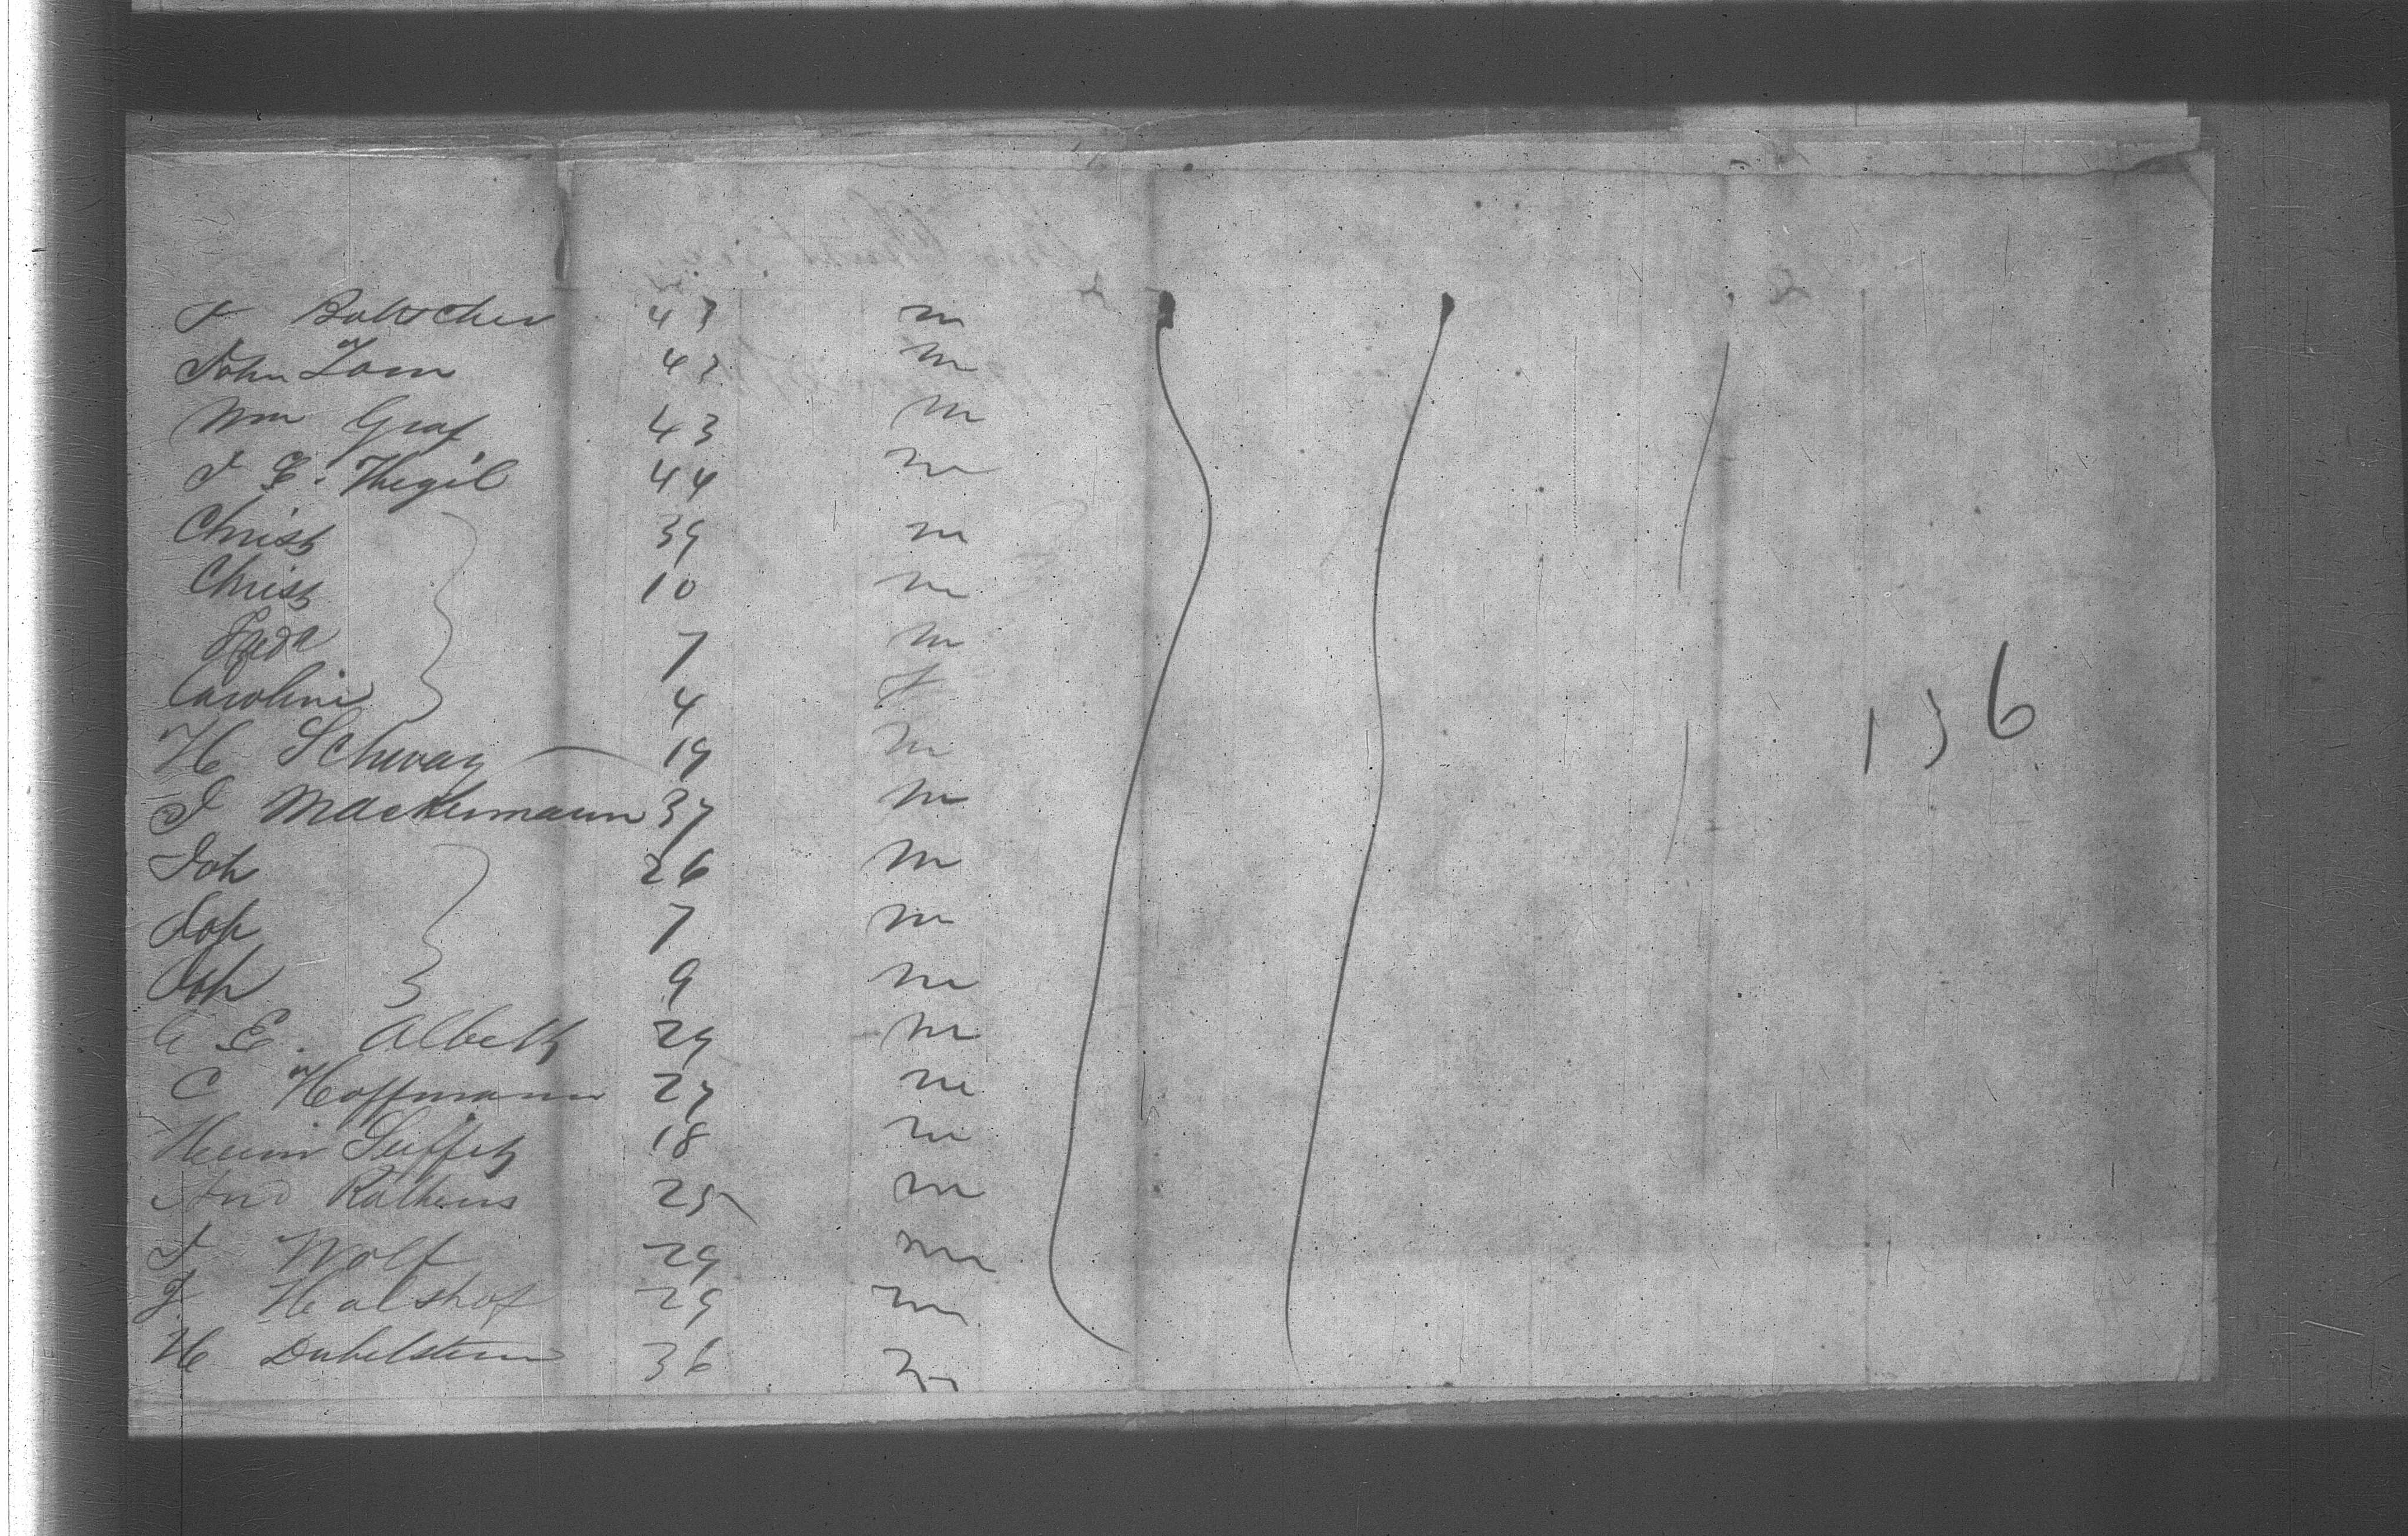 John Zorn 43 m
Wm Graf 43 m
J E. Thegil 44 m
Christ 39 m
Christ 10 m
7 m
Caroline 4 f
H Schwarz 19 m
J Mackermann 37 m
Joh 26 m
Joh 7 m
Joh 9 m
E. Albeth 29 m
C Hoffmann 27 m
18 m
And Rathens 25 m
J Wolf 29 m
J. Halshof 29 m
H Dubelstein 36 m
136